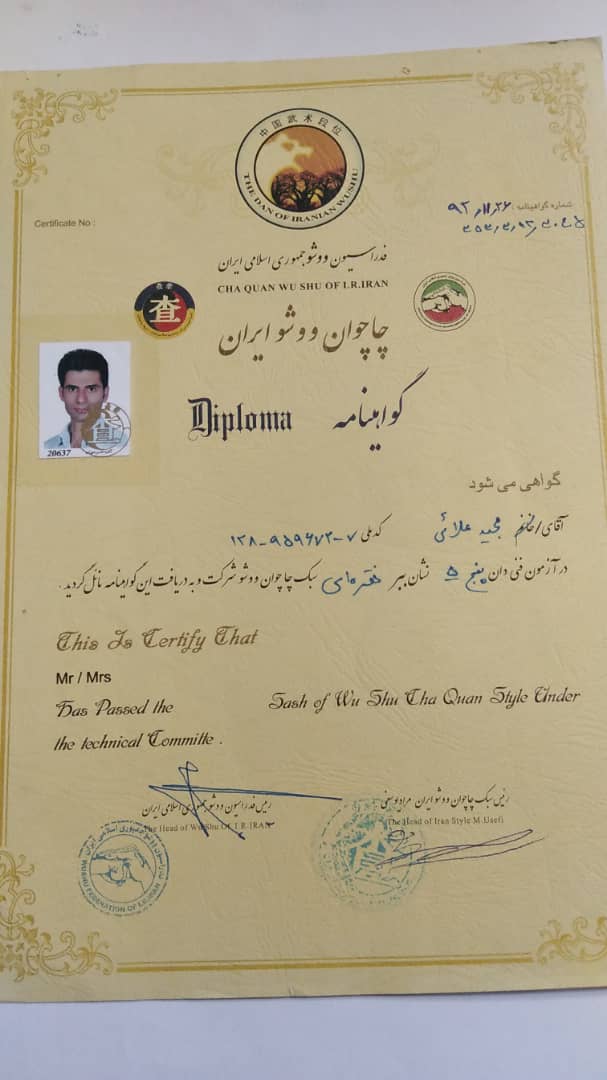 中国武术段位
THE DAN OF IRANIAN WUSHU
شماره گواهینامه: ۹۲,۱۱,۲۶
Certificate No :
فدراسیون ووشو جمهوری اسلامی ایران
CHA QUAN WU SHU OF I.R.IRAN
查
چاچوان ووشو ایران
Diploma گواهینامه
20637
گواهی می شود
آقای/خانم مجید علائی کدملی ۱۲۸-۹۵۹۶۷۲-۷
در آزمون فنی دان پنج ۵ نشان ببر نقره‌ای سبک چاچوان ووشو شرکت و به دریافت این گواهینامه نائل گردید .
This Is Certify That
Mr / Mrs
Has Passed the Sash of Wu Shu Cha Quan Style Under
the technical Committe .
رئیس فدراسیون ووشو جمهوری اسلامی ایران رئیس سبک چاچوان ووشو ایران مراد یوسفی
The Head of Wu Shu Of I.R.IRAN The Head of Iran Style M.Usefi
WUSHU FEDERATION OF I.R.IRAN